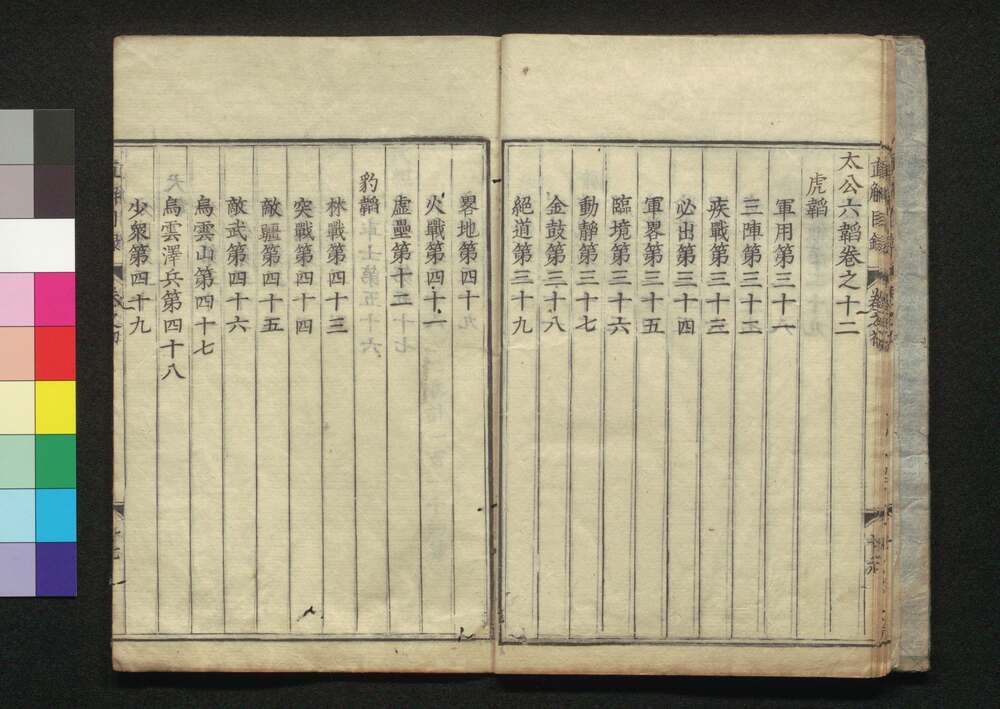 太公六韜卷之十二
虎韜
軍用第三十一
三陣第三十二
疾戰第三十三
必出第三十四
軍畧第三十五
臨境第三十六
動靜第三十七
金鼓第三十八
絕道第三十九
畧地第四十
火戰第四十一
虛壘第四十二
豹韜
林戰第四十三
突戰第四十四
敵彊第四十五
敵武第四十六
烏雲山第四十七
烏雲澤兵第四十八
少衆第四十九